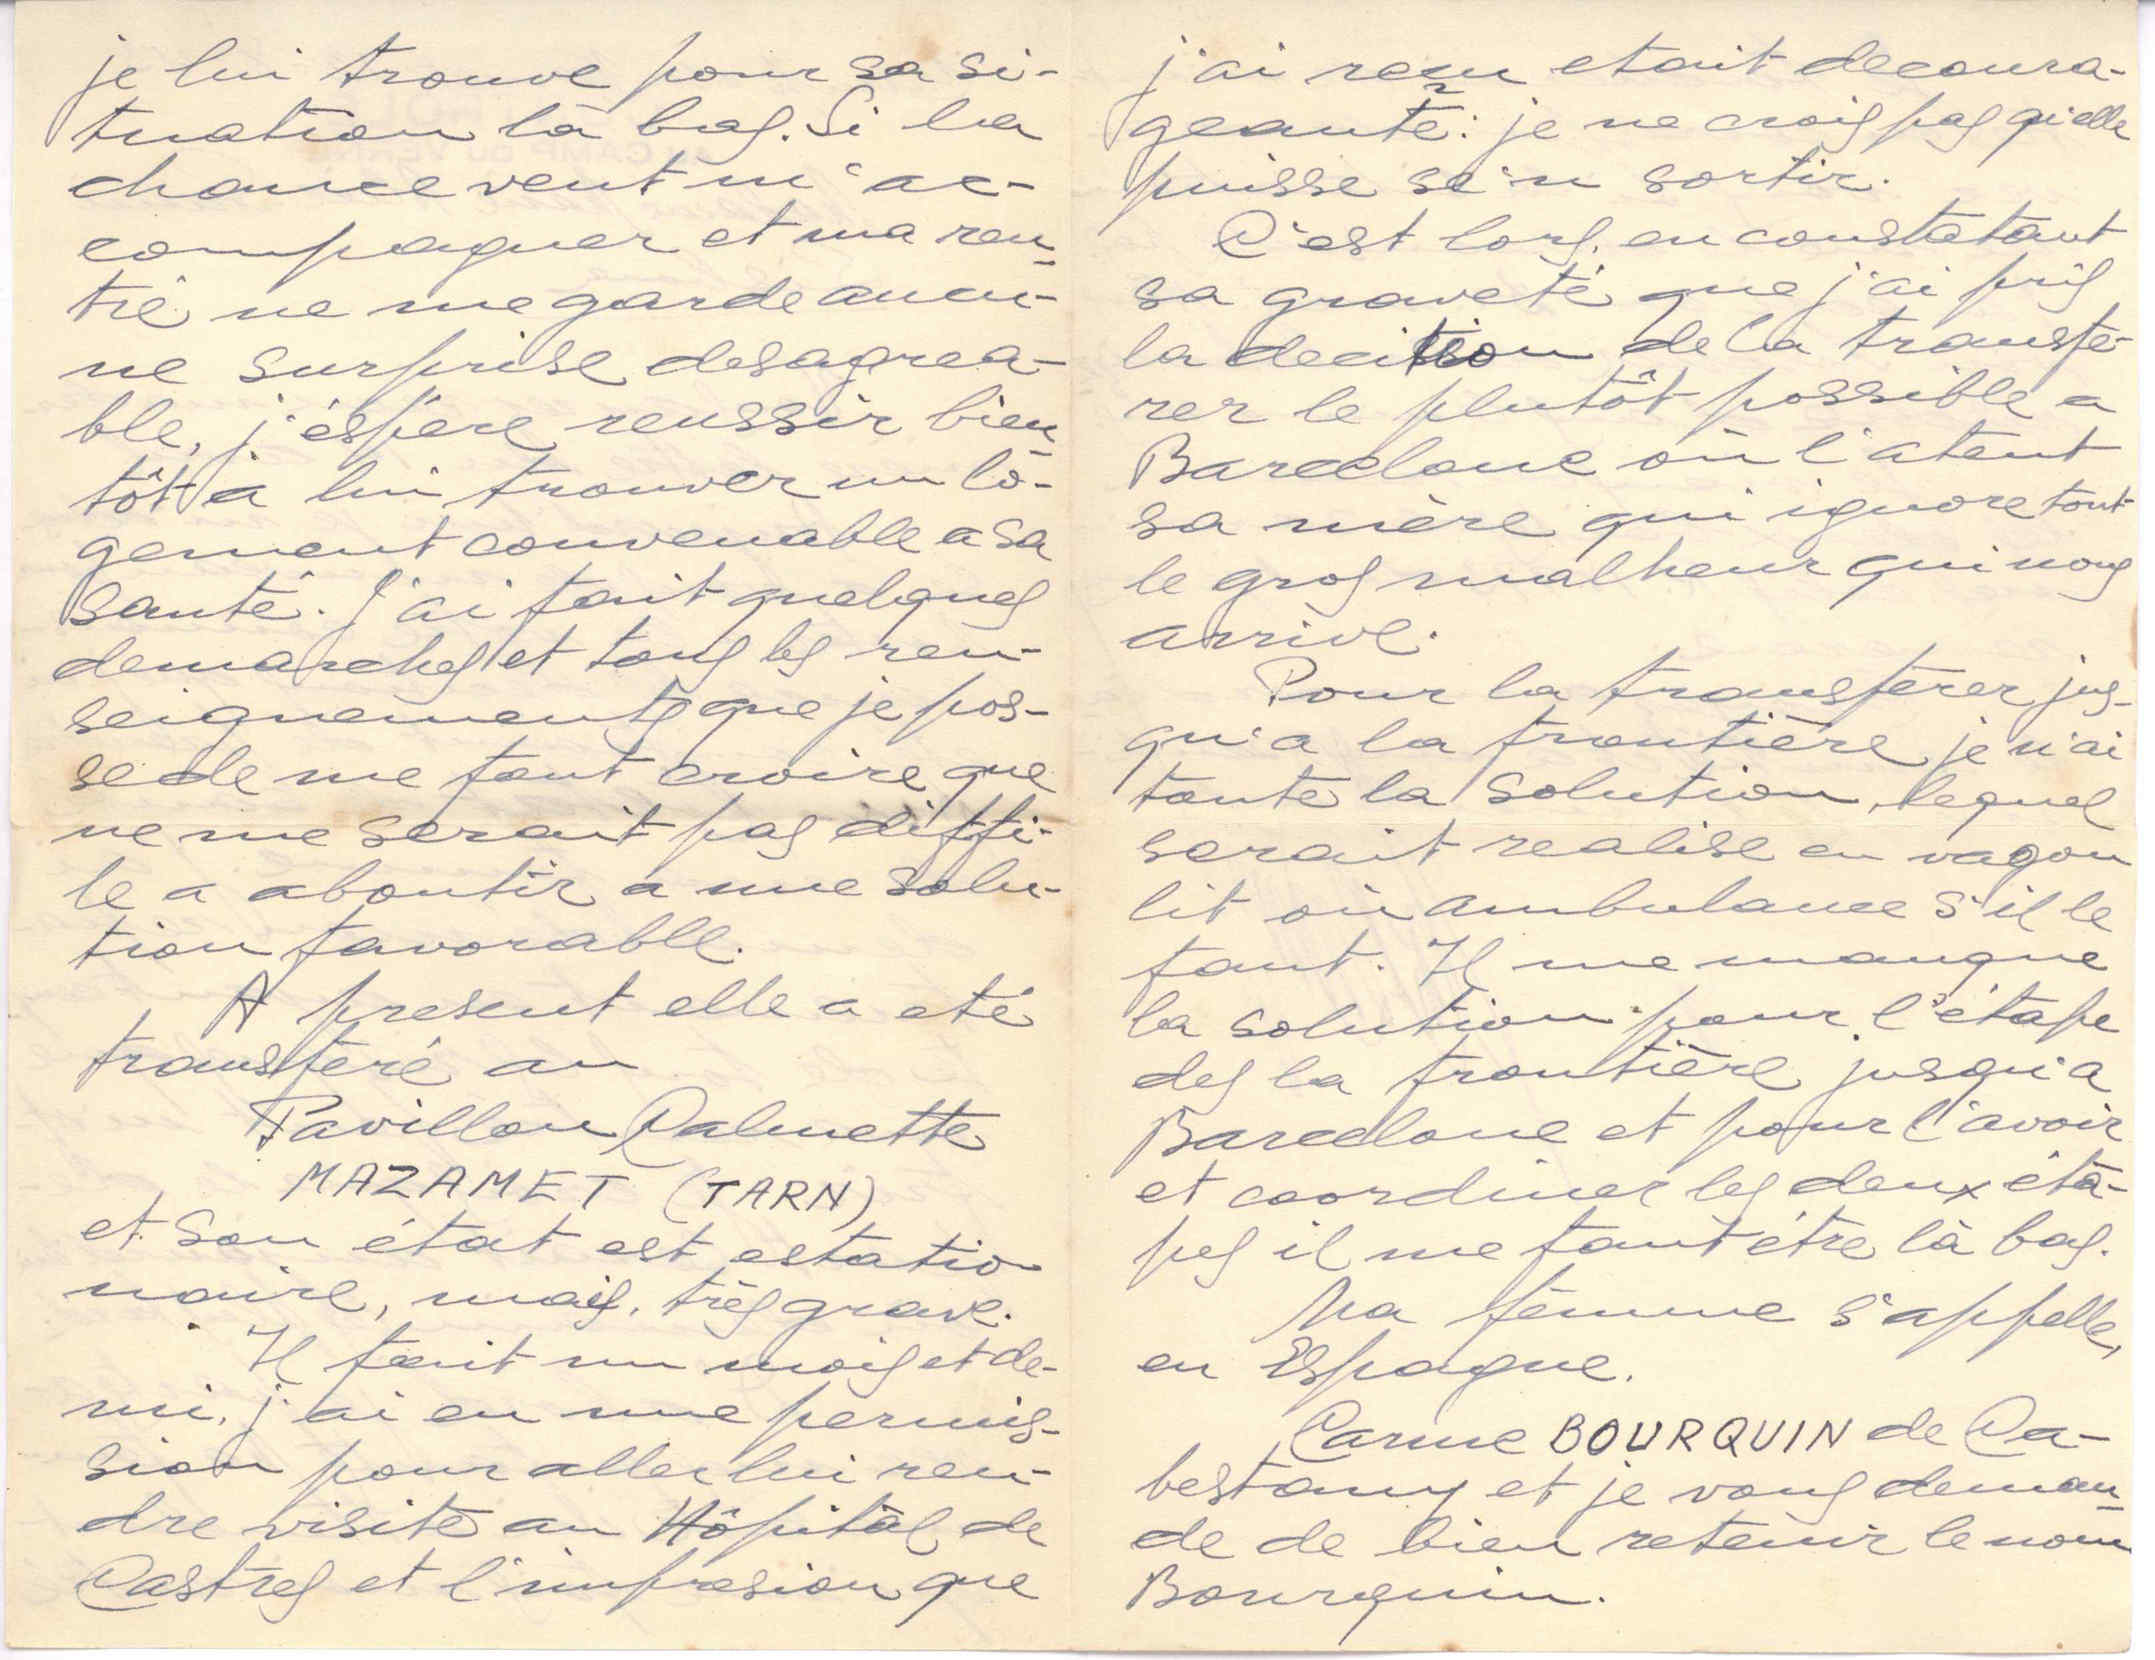 je lui trouve pour sa si-
tuation là bas. Si la
chance veut m'ac-
compagner et ma ren-
tré ne me garde aucu-
ne surprise desagrea-
ble, j'éspere reussir bien-
tôt a lui trouver un lo-
gement convenable a sa
santé. J'ai fait quelques
demarches et tous les ren-
seignements que je pos-
sede me font croire que
ne me serait pas diffi-
le a aboutir a une solu-
tion favorable.
A present elle a eté
transferé au
Pavillon Calmette
MAZAMET (TARN)
et son état est estatio
naire, mais, très grave.
Il fait un mois et de-
mi, j'ai eu une permis-
sion pour aller lui ren-
dre visite au Hôpitàl de
Castres et l'impresion que
j'ai reçu etait decoura-
geante: je ne crois pas qu'elle
puisse se'n sortir.
C'est lors, en constatant
sa graveté que j'ai pris
la decission de la transfe-
rer le plutôt possible a
Barcelone où l'atent
sa mère qui ignore tout
le gros malheur qui nous
arrive.
Pour la transferer jus-
qu'a la frontière je n'ai
toute la solution, lequel
serait realise en wagon
lit où ambulance s'il le
faut. Il me manque
la solution pour l'étape
des la frontière jusqu'a
Barcelone et pour l'avoir
et coordiner les deux éta-
pes il me faut être là bas.
Ma fèmme s'appelle,
en Espagne.
Carme BOURQUIN de Ca-
bestany et je vous deman-
de de bien retenir le nom
Bourquin.